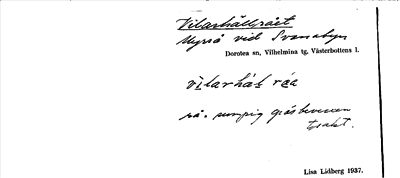 Vilarhällrået
Myrrå vid Svanabyn
Dorotea sn, Vilhelmina tg. Västerbottens l.
rå. sumpig gräsbevuxen
trakt.
Lisa Lidberg 1937.